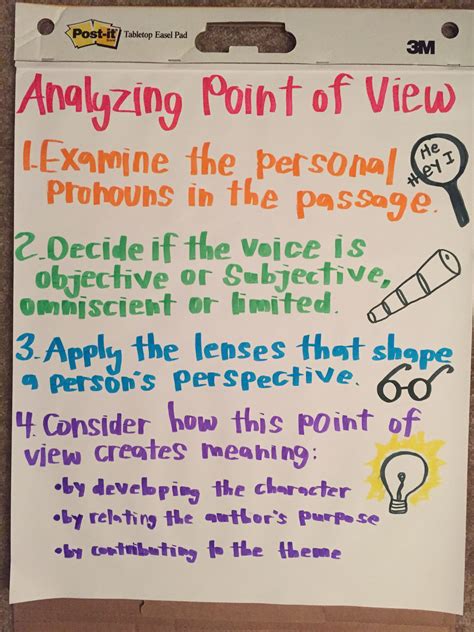 Post-it Tabletop Easel Pad
3M
Analyzing Point of View
1. Examine the personal
pronouns in the passage.
He
they I
2. Decide if the voice is
objective or Subjective,
omniscient or limited.
3. Apply the lenses that shape
a person's perspective.
4. Consider how this point of
view creates meaning:
•by developing the character
•by relating the author's purpose
•by contributing to the theme